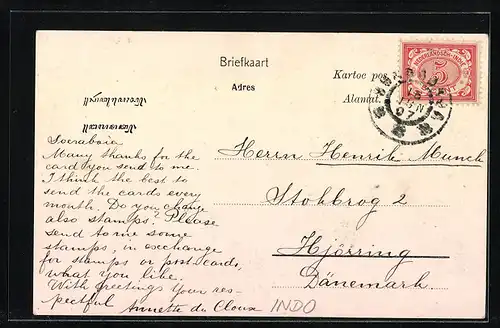 Briefkaart
Adres
Kartoe pos
Alamat.
5
JUN
07
Soerabaia
Many thanks for the
card you send to me.
I think the best to
send the cards every
month. Do you change
also stamps? Please
send to me some
stamps, in exchange
for stamps or post-cards,
what you like.
With greetings your res-
pectful Annette du Cloux
Herrn Henrik Munck
Stokbrog 2
Hjörring
Dänemark
INDO